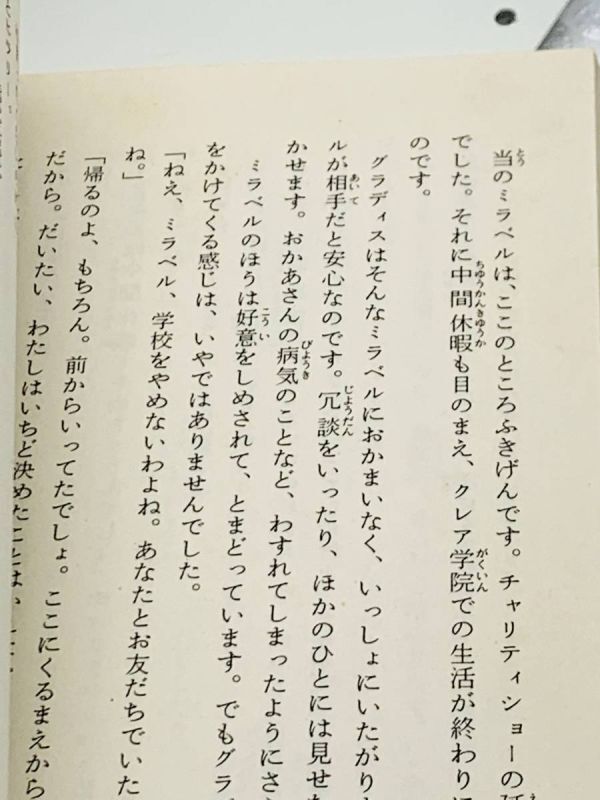 当のミラベルは、ここのところふきげんです。チャリティショーの
でした。それに中間休暇も目のまえ、クレア学院での生活が終わりに
のです。
グラディスはそんなミラベルにおかまいなく、いっしょにいたがり
ルが相手だと安心なのです。冗談をいったり、ほかのひとには見せ
かせます。おかあさんの病気のことなど、わすれてしまったようにさ
ミラベルのほうは好意をしめされて、とまどっています。でもグラ
をかけてくる感じは、いやではありませんでした。
「ねえ、ミラベル、学校をやめないわよね。あなたとお友だちでいた
ね。」
「帰るのよ、もちろん。前からいってたでしょ。ここにくるまえから
だから。だいたい、わたしはいちど決めたことは、